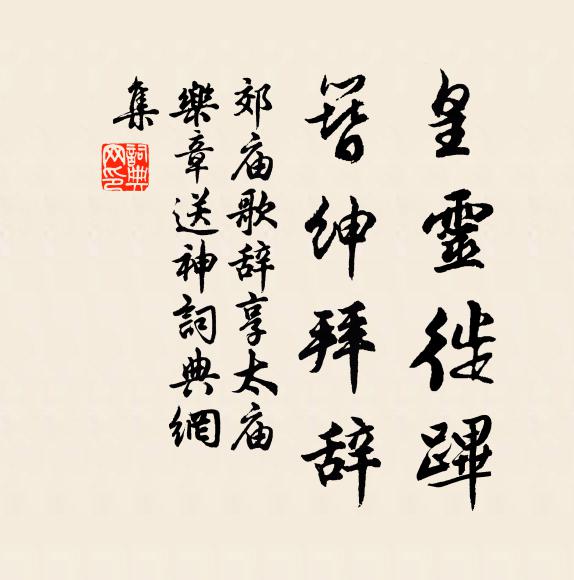 皇靈徙蹕
簪紳拜辞
郊庙歌辞享太庙
樂章送神詞典網
集
詞典网印